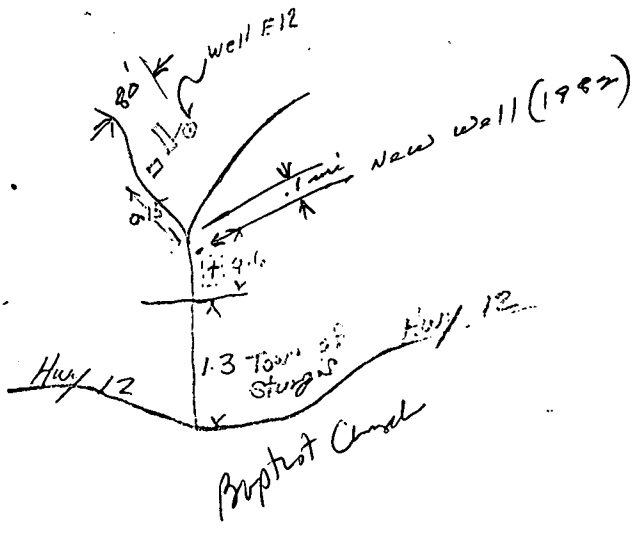 Well E12
80'
New Well (1982)
.1 mi
1.3 Town of
Sturgis
Hwy 12
Hwy. 12
Baptist Church